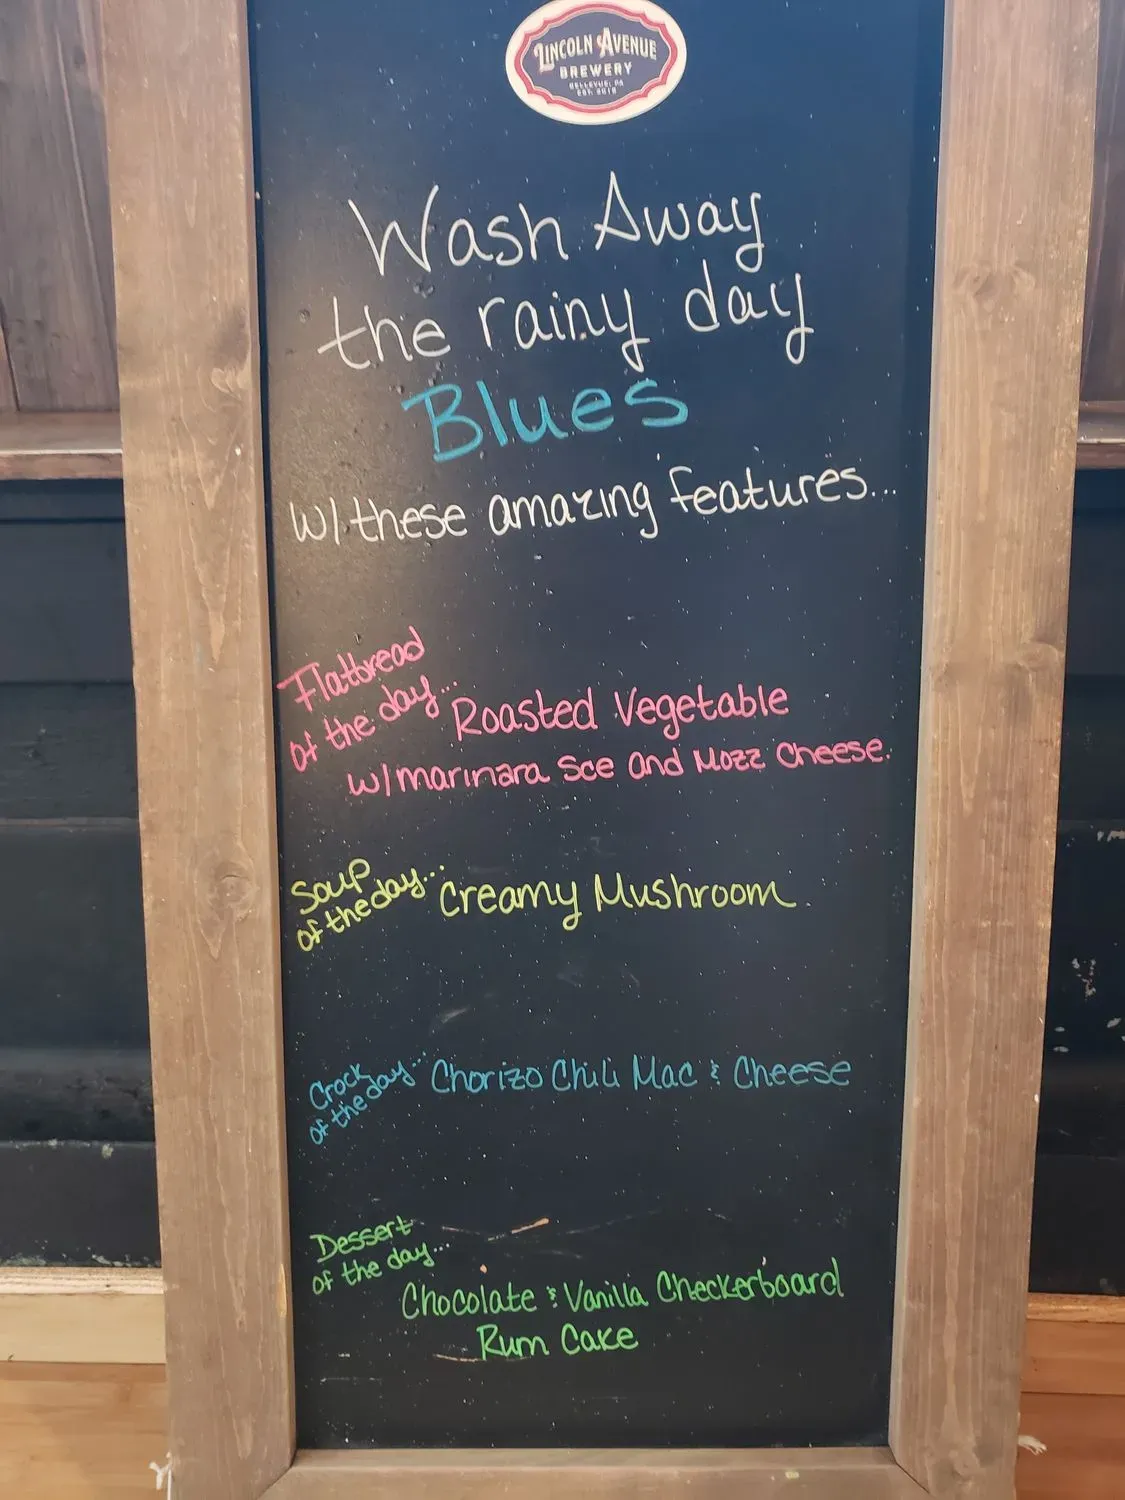 LINCOLN AVENUE
BREWERY
BELLEVUE, PA
EST. 2018
Wash Away
the rainy day
Blues
w/ these amazing features...
Flatbread
of the day...
Roasted Vegetable
w/ marinara sce and Mozz Cheese.
Soup
of the day...
Creamy Mushroom
Crock
of the day...
Chorizo Chili Mac & Cheese
Dessert
of the day...
Chocolate & Vanilla Checkerboard
Rum Cake